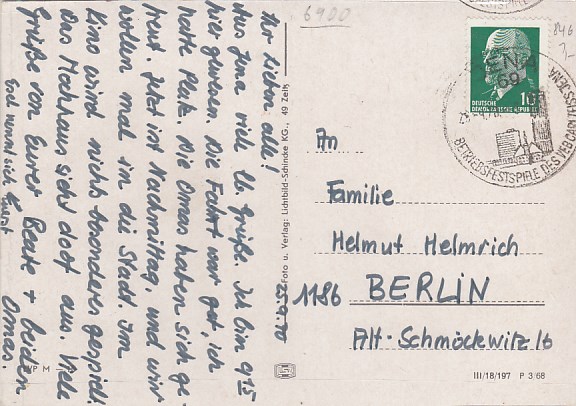 25.9.70
Ihr Lieben all!
Aus Jena viele lb. Grüße. Ich bin 9¹⁵
hier gewesen. Die Fahrt war gut, ich
hatte Platz. Die Omas haben sich ge-
freut. Jetzt ist Nachmittag, und wir
wollen mal in die Stadt. Im
Kino wird nichts besonders gespielt.
Das Hochhaus sieht doof aus. Viele
Grüße von Eurer Beate + beiden
Omas.
Foto u. Verlag: Lichtbild-Schincke KG., 49 Zeitz
6900
846
DEUTSCHE
DEMOKRATISCHE REPUBLIK
10
JENA
69
BETRIEBSFESTSPIELE DES VEB CARL ZEISS JENA
An
Familie
Helmut Helmrich
1186 BERLIN
Alt-Schmöckwitz 16
III/18/197 P 3/68